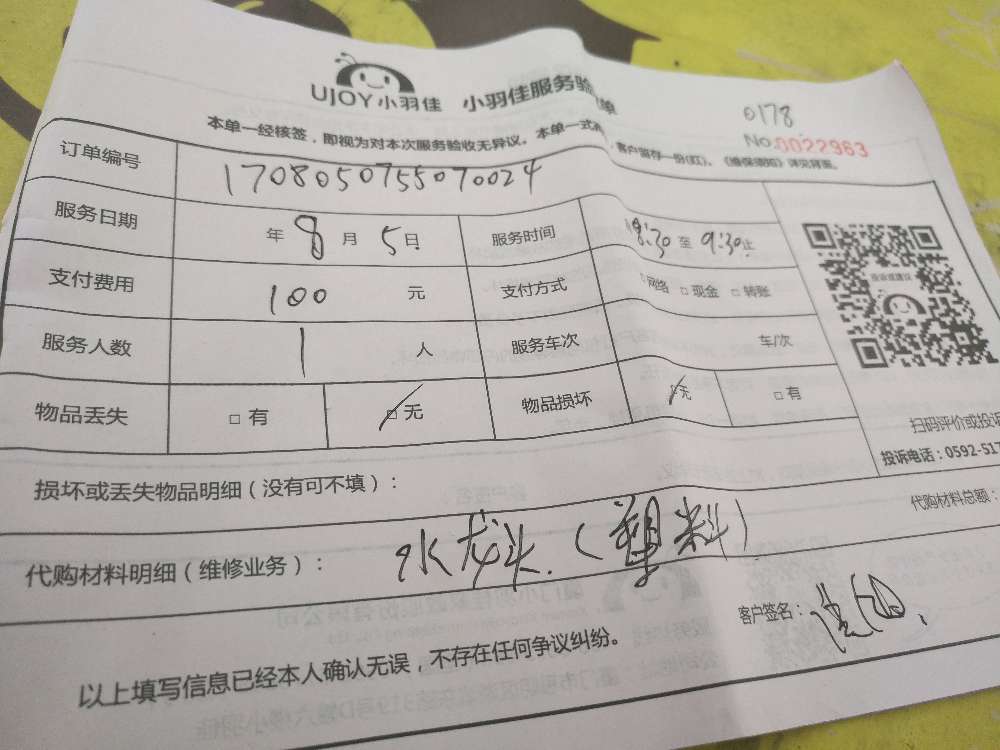 UJOY小羽佳 小羽佳服务验 单
0178
No.0022963
本单一经核签，即视为对本次服务验收无异议。本单一式 ，客户留存一份(红)，《维保须知》详见背面。
订单编号 1708050755070024
服务日期 年 8 月 5 日 服务时间 8:30 至 9:30 止
支付费用 100 元 支付方式 □网络 □现金 □转账
服务人数 1 人 服务车次 车/次
物品丢失 □有 □无 物品损坏 □无 □有
投诉或建议
扫码评价或投诉
投诉电话：0592-517
损坏或丢失物品明细（没有可不填）：
代购材料总额：
代购材料明细（维修业务）： 水龙头.（塑料）
客户签名：
以上填写信息已经本人确认无误，不存在任何争议纠纷。